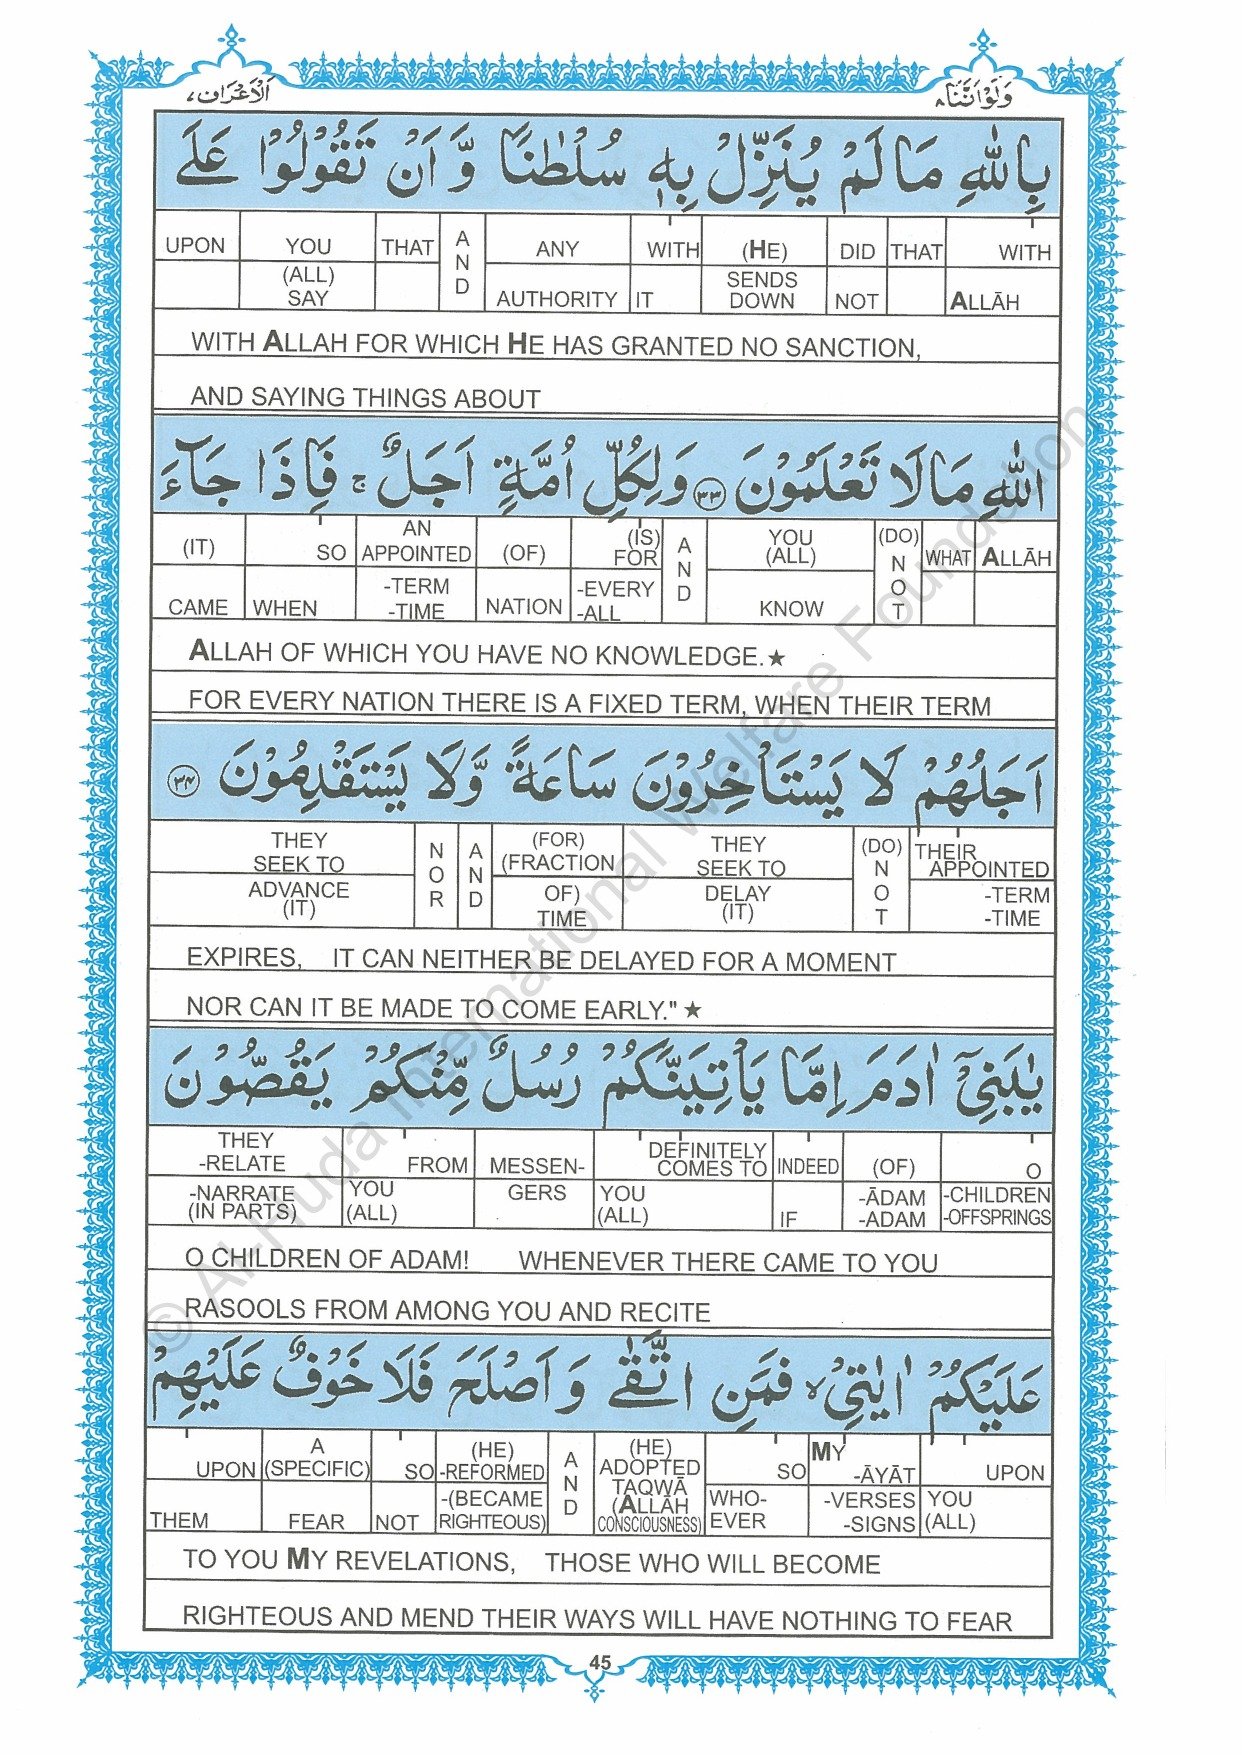 وَلَوْاَنَّنَا ٨
اَلْاَعْرَاف ٧
بِاللّٰهِ مَا لَمْ يُنَزِّلْ بِهٖ سُلْطٰنًا وَّ اَنْ تَقُوْلُوْا عَلَى
UPON YOU THAT AND ANY WITH (HE) DID THAT WITH
(ALL) SAY AUTHORITY IT SENDS DOWN NOT ALLĀH
WITH ALLAH FOR WHICH HE HAS GRANTED NO SANCTION,
AND SAYING THINGS ABOUT
اللّٰهِ مَا لَا تَعْلَمُوْنَ ٣٣ وَلِكُلِّ اُمَّةٍ اَجَلٌ ۚ فَاِذَا جَآءَ
(IT) SO AN APPOINTED (OF) (IS) FOR AND YOU (ALL) (DO) NOT WHAT ALLĀH
CAME WHEN -TERM -TIME NATION -EVERY -ALL KNOW
ALLAH OF WHICH YOU HAVE NO KNOWLEDGE.★
FOR EVERY NATION THERE IS A FIXED TERM, WHEN THEIR TERM
اَجَلُهُمْ لَا يَسْتَاْخِرُوْنَ سَاعَةً وَّلَا يَسْتَقْدِمُوْنَ ٣٤
THEY SEEK TO NOR AND (FOR) (FRACTION THEY SEEK TO (DO) NOT THEIR APPOINTED
ADVANCE (IT) OF) TIME DELAY (IT) -TERM -TIME
EXPIRES, IT CAN NEITHER BE DELAYED FOR A MOMENT
NOR CAN IT BE MADE TO COME EARLY." ★
يٰبَنِيْٓ اٰدَمَ اِمَّا يَاْتِيَنَّكُمْ رُسُلٌ مِّنْكُمْ يَقُصُّوْنَ
THEY -RELATE FROM MESSEN- DEFINITELY COMES TO INDEED (OF) O
-NARRATE (IN PARTS) YOU (ALL) GERS YOU (ALL) IF -ĀDAM -ADAM -CHILDREN -OFFSPRINGS
O CHILDREN OF ADAM! WHENEVER THERE CAME TO YOU
RASOOLS FROM AMONG YOU AND RECITE
عَلَيْكُمْ اٰيٰتِيْ ۙ فَمَنِ اتَّقٰى وَاَصْلَحَ فَلَا خَوْفٌ عَلَيْهِمْ
UPON A (SPECIFIC) SO (HE) -REFORMED AND (HE) ADOPTED TAQWĀ (ALLĀH CONSCIOUSNESS) SO MY -ĀYĀT UPON
THEM FEAR NOT -(BECAME RIGHTEOUS) WHO-EVER -VERSES -SIGNS YOU (ALL)
TO YOU MY REVELATIONS, THOSE WHO WILL BECOME
RIGHTEOUS AND MEND THEIR WAYS WILL HAVE NOTHING TO FEAR
45
© Al-Huda International Welfare Foundation